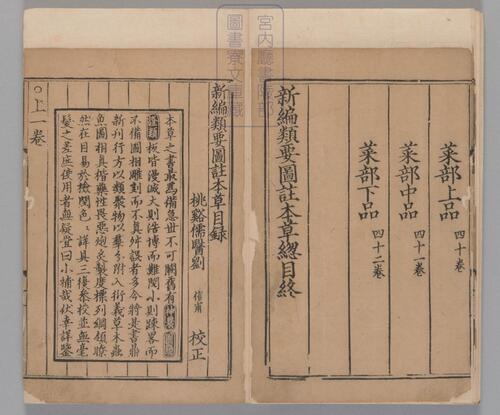 菜部上品 四十卷
菜部中品 四十一卷
菜部下品 四十二卷
新編類要圖註本草總目終
宮內廳書陵部
圖書寮文庫藏
新編類要圖註本草目錄
桃谿儒醫劉 信甫 校正
本草之書最爲備急世不可闕舊有
板皆漫滅大則浩博而難閱小則踈畧而
不備圖相雕刻而不眞舛誤者多今將是書鼎
新刊行方以類聚物以羣分附入衍義草木蟲
魚圖相眞楷藥性畏惡炮炙製度標列綱領瞭
然在目易於檢閱色色詳具三復參校並無毫
髮之差庶使用者無疑豈曰小補哉伏幸詳鑒
○上一卷